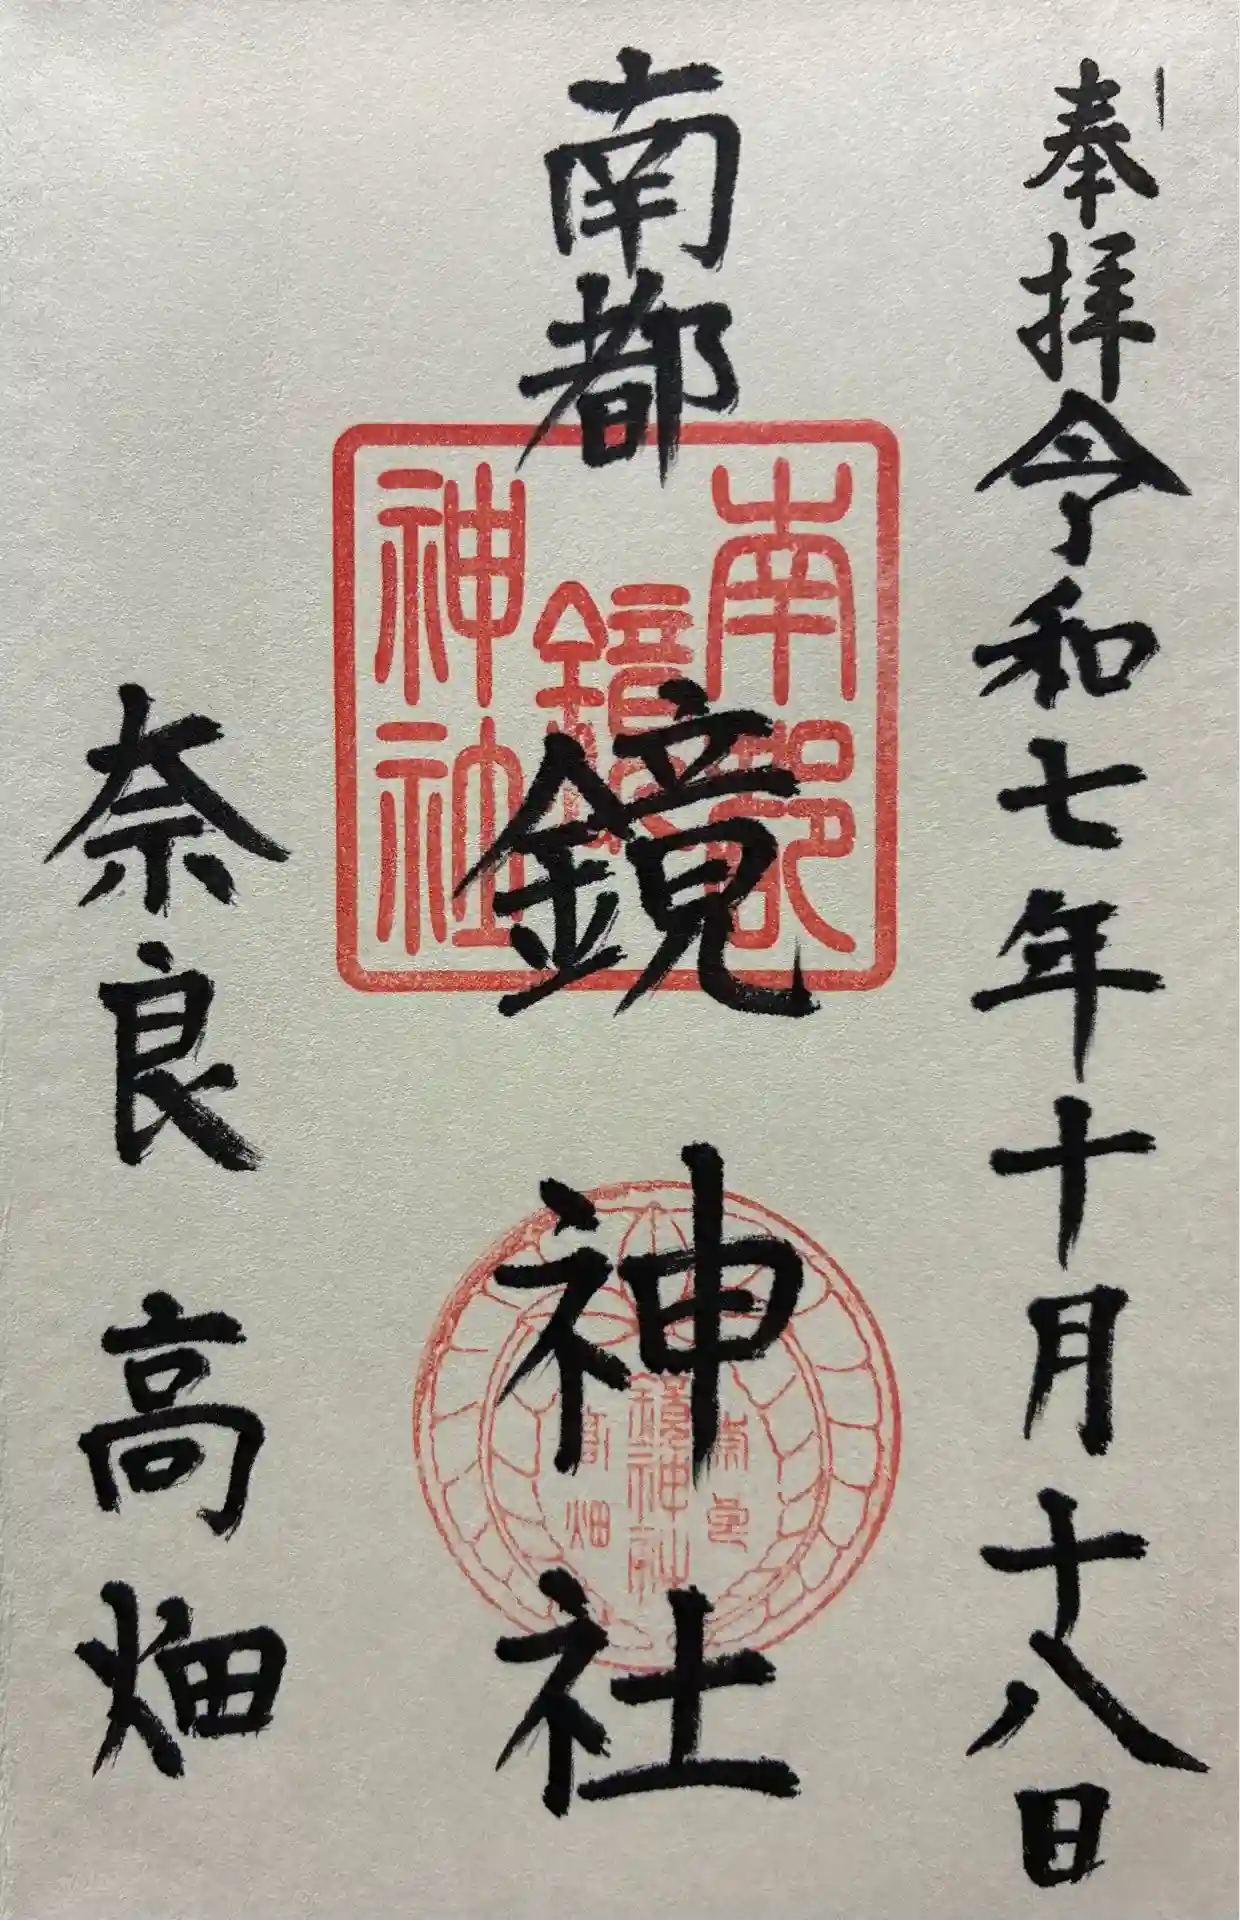 奉拝令和七年十月十八日
南都
鏡神社
奈良高畑
南都
鏡
神社
奈良
鏡神社
高畑